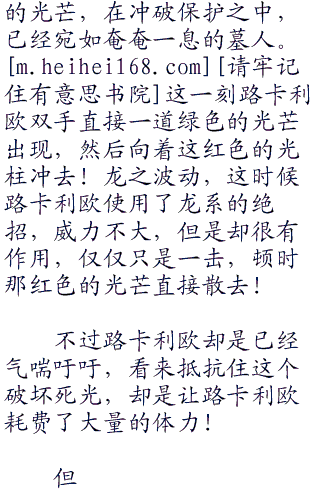 的光芒，在冲破保护之中，
已经宛如奄奄一息的墓人。
[m.heihei168.com][请牢记
住有意思书院]这一刻路卡利
欧双手直接一道绿色的光芒
出现，然后向着这红色的光
柱冲去！龙之波动，这时候
路卡利欧使用了龙系的绝
招，威力不大，但是却很有
作用，仅仅只是一击，顿时
那红色的光芒直接散去！
不过路卡利欧却是已经
气喘吁吁，看来抵抗住这个
破坏死光，却是让路卡利欧
耗费了大量的体力！
但